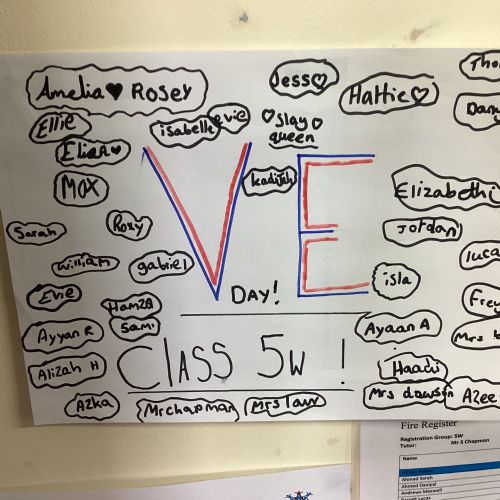 Amelia♥ Rosey
Jess♡
Hattie♡
Tho
Dan
Ellie
isabelle
evie
♡Slay♡
queen
Elian♥
Max
Kadijah
Elizabeth
Sarah
Roxy
Jordan
William
gabriel
luca
isla
VE
DAY!
Evie
Hamza
Frey
Ayyan R
Sami
Ayaan A
Mrs
Alizah H
CLASS 5W !
Haadi
Azka
Mr chapman
Mrs law
Mrs dawson
Azee
Fire Register
Registration Group: 5W
Tutor: Mr S Chapman
Name
Ahmad Sarah
Ahmed Daniyal
Andrews Maxwell